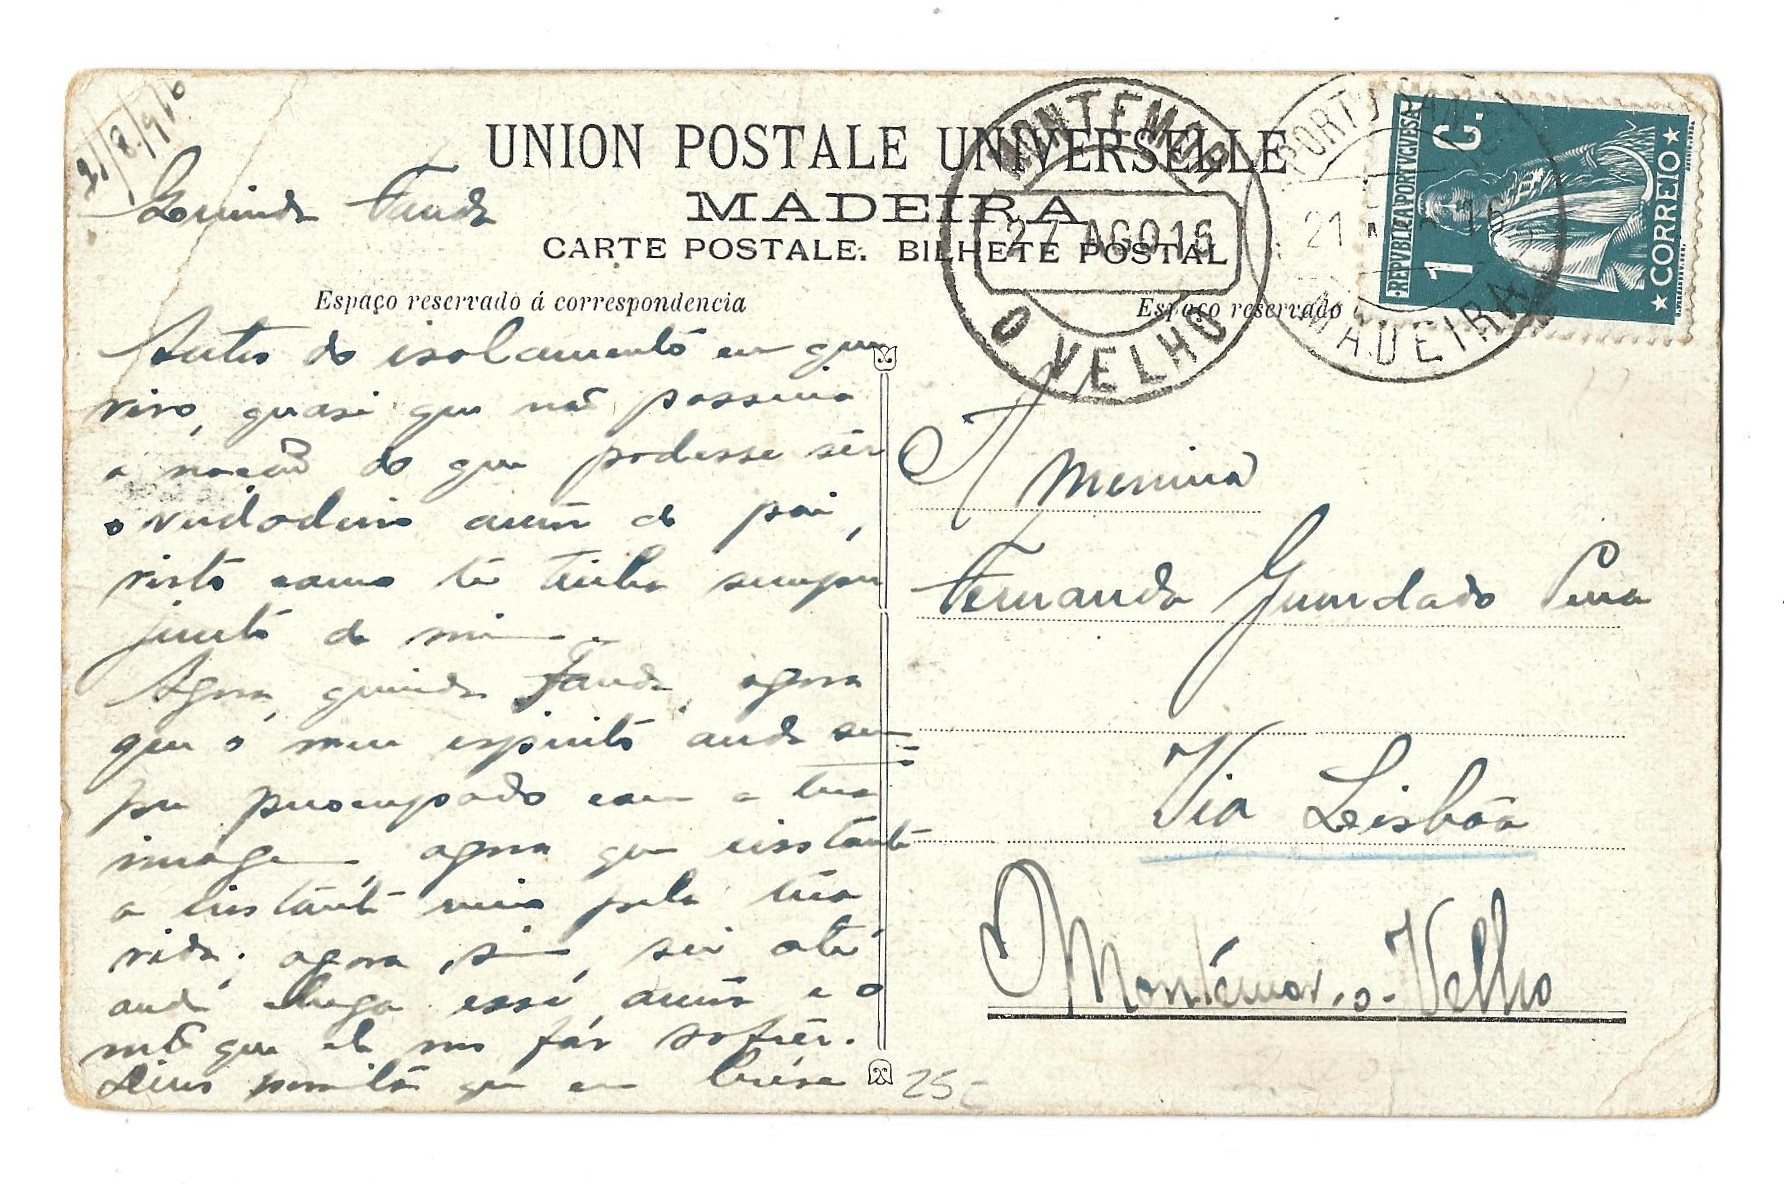 21/8/916
UNION POSTALE UNIVERSELLE
MADEIRA
CARTE POSTALE. BILHETE POSTAL
Espaço reservado á correspondencia
Espaço reservado
MONTEMOR
27 AGO 16
O VELHO
PORTO SAN
21
16
MADEIRA
REPVBLICA PORTVGVESA
1 C.
CORREIO
Fanda
Antes do isolamento em que
vivo, quasi que não possuia
a noção do que podesse sêr
o verdadeiro amôr de pai,
visto como te tinha sempre
junto de mim.
Agora, querida Fanda, agora
que o meu espirito anda sem=
pre preocupado com a tua
imagem, agora que instante
a instante vivo pela tua
vida; agora sim, sei até
onde chega esse amôr e o
que ele nos fáz sofrêr.
Deus permita que em
A Menina
Fernanda
Via Lisbôa
Montemor-o-Velho
25-